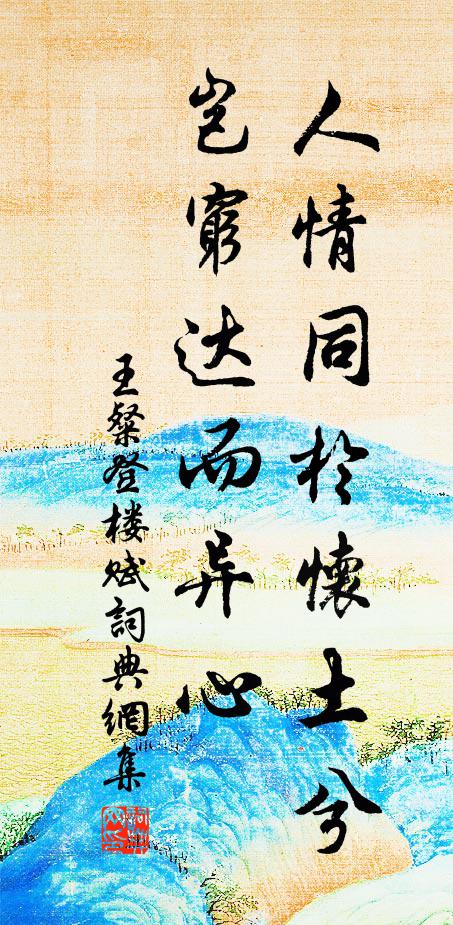 人情同於懷土兮
豈窮达而异心
王粲登楼赋詞典網集